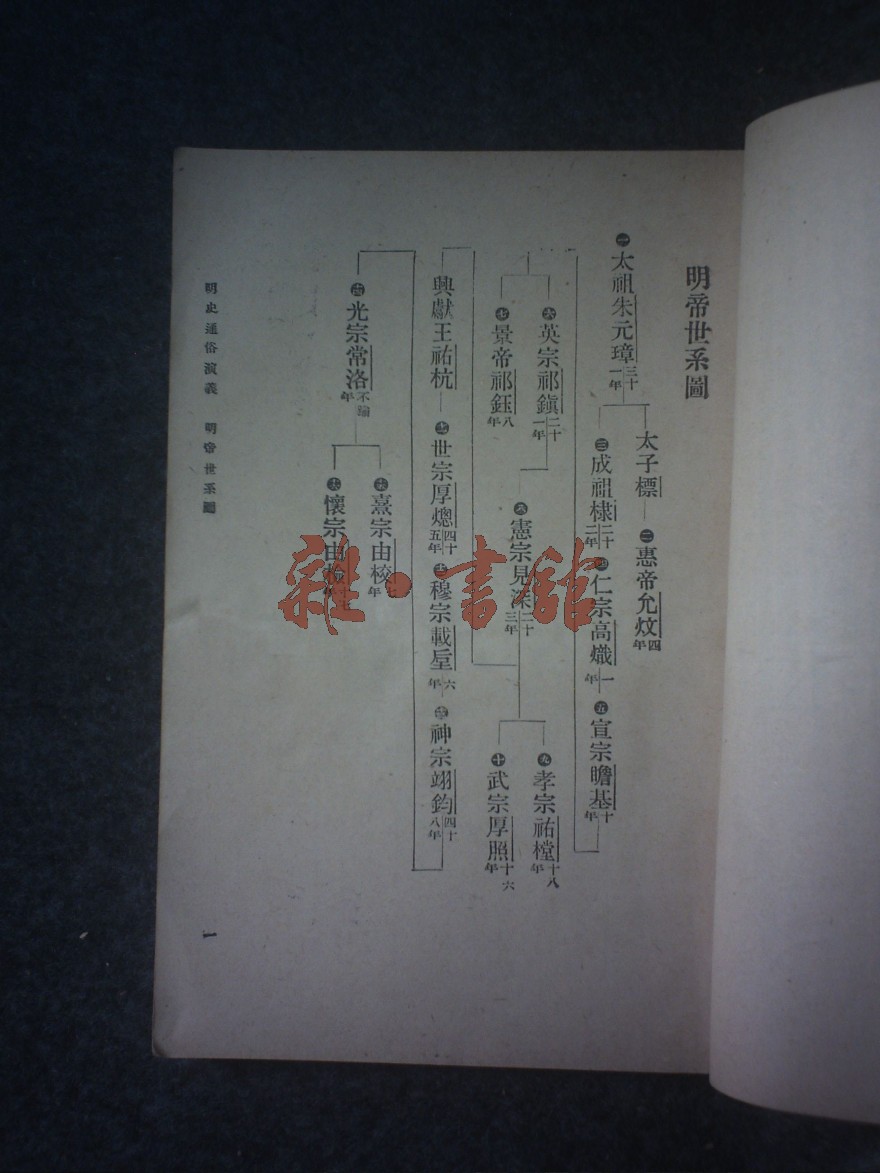 明帝世系圖
㊀太祖朱元璋三十一年
太子標
㊁惠帝允炆四年
㊂成祖棣二十二年
㊃仁宗高熾一年
㊄宣宗瞻基十年
㊅英宗祁鎭二十一年
㊆景帝祁鈺八年
㊇憲宗見深二十三年
㊈孝宗祐樘十八年
㊉武宗厚照十六年
興獻王祐杭
世宗厚熜四十五年
穆宗載垕六年
神宗翊鈞四十八年
光宗常洛不逾年
熹宗由校年
懷宗由檢年
明史通俗演義 明帝世系圖
一
雜·書館